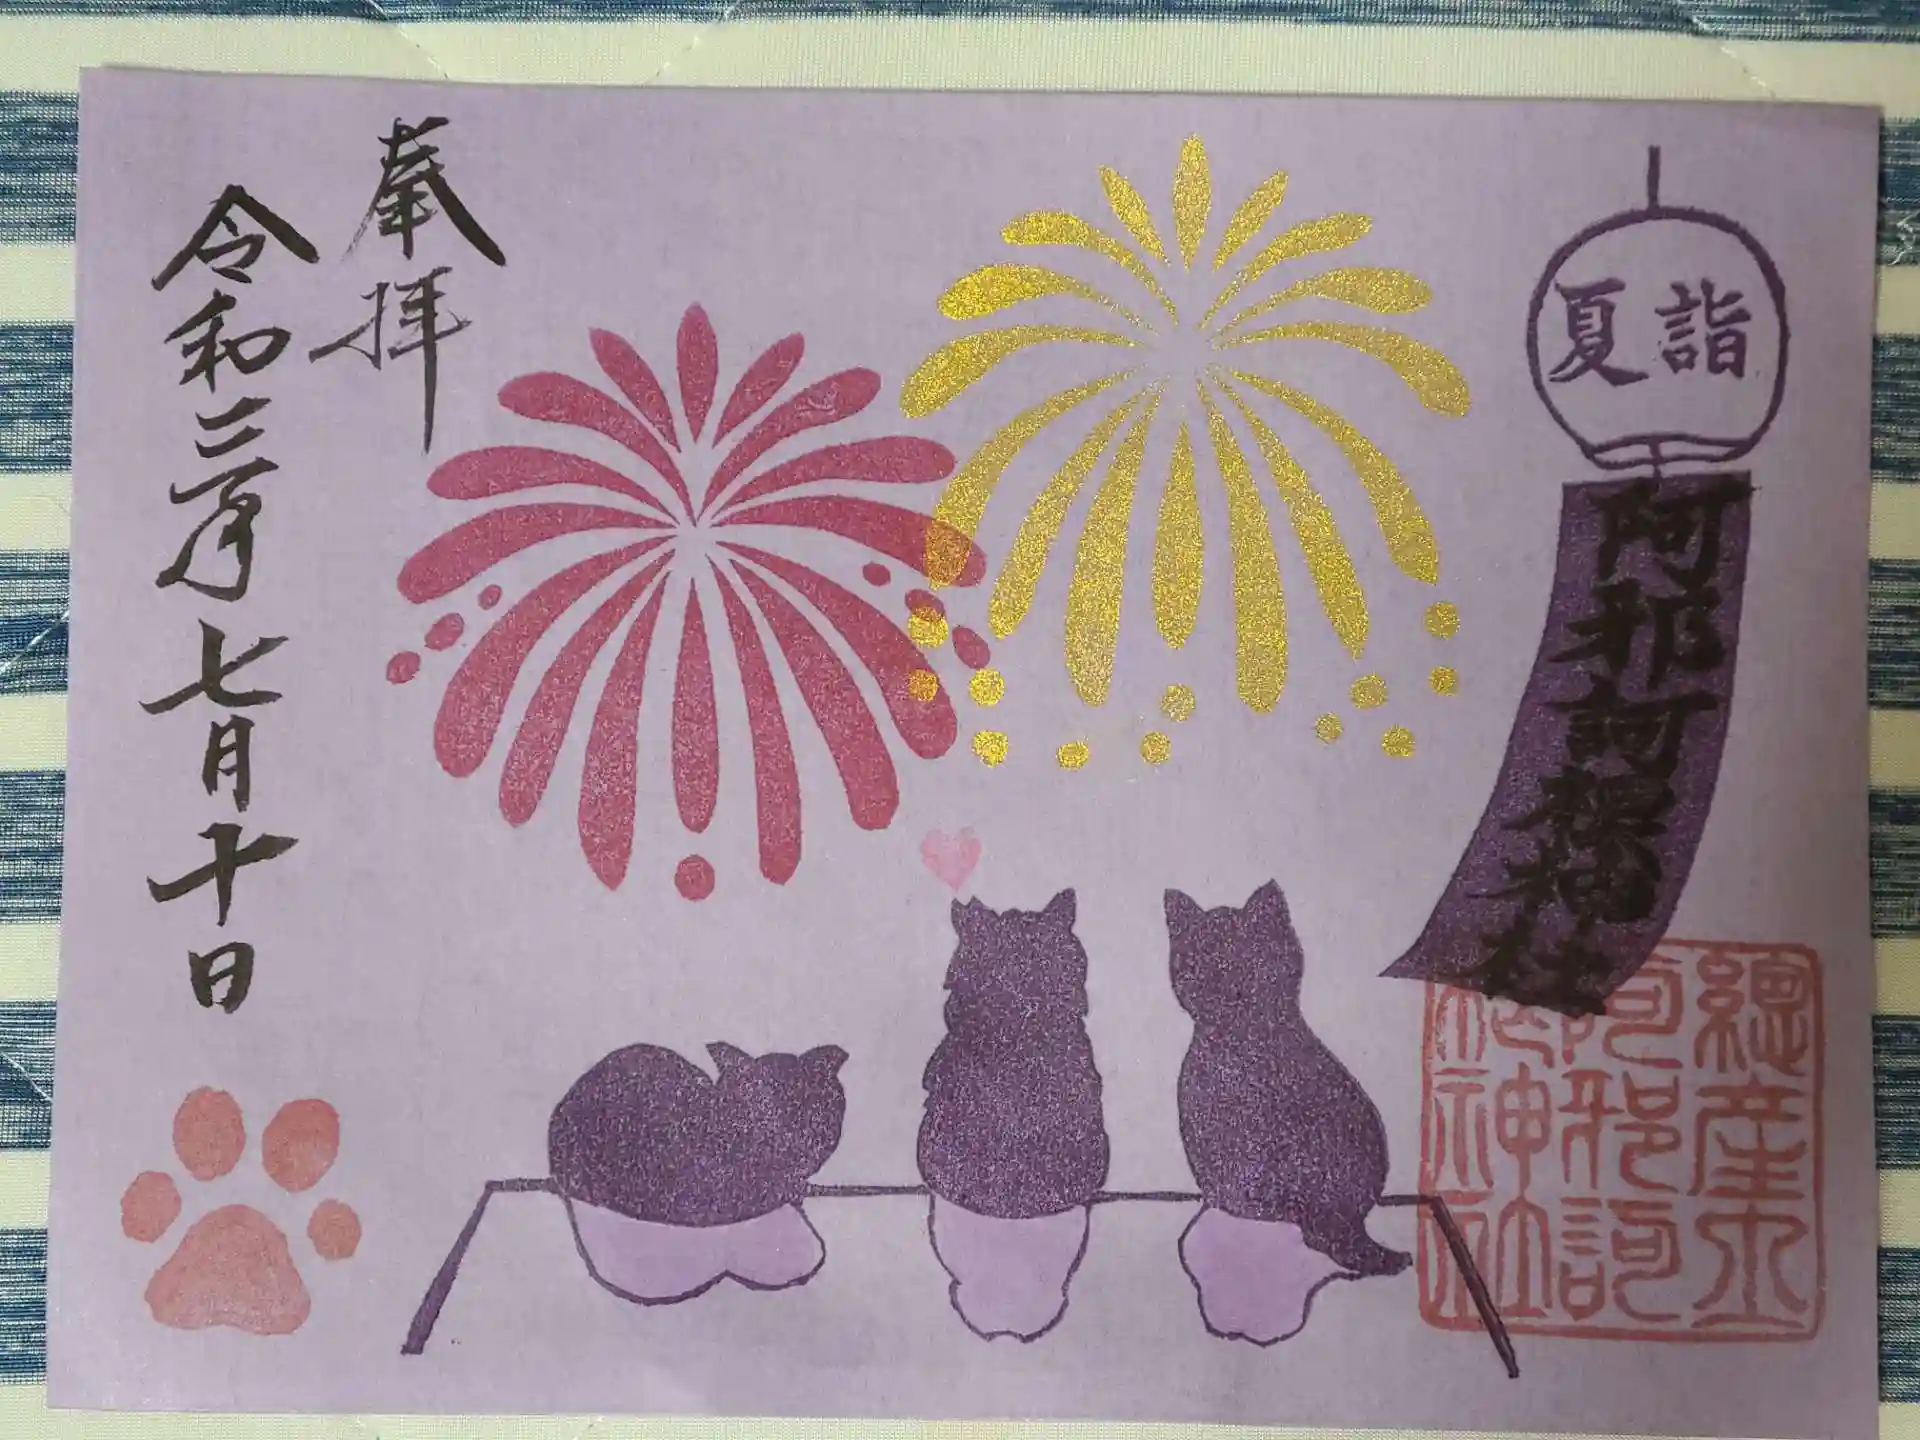 夏詣
阿邪訶根神社
總産土
阿邪訶
根神社
奉拝
令和三年七月十日